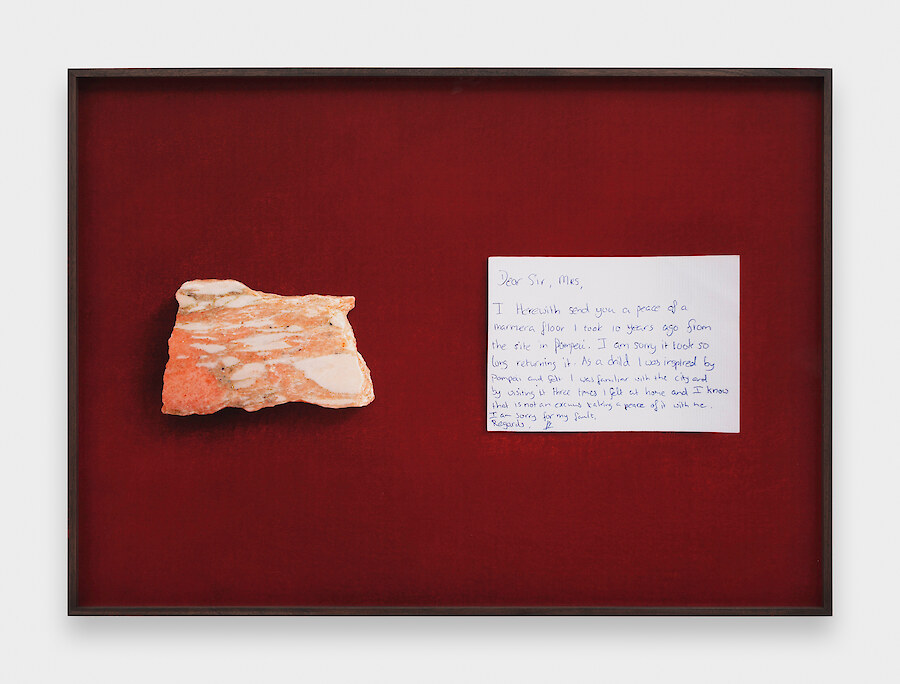 Dear Sir, Mrs,
I Herewith send you a peace of a
marmera floor I took 10 years ago from
the site in Pompeii. I am sorry it took so
long returning it. As a child I was inspired by
Pompeii and felt I was familiar with the city and
by visiting it three times I felt at home and I know
that is not an excuus taking a peace of it with me.
I am sorry for my faulc.
Regards,